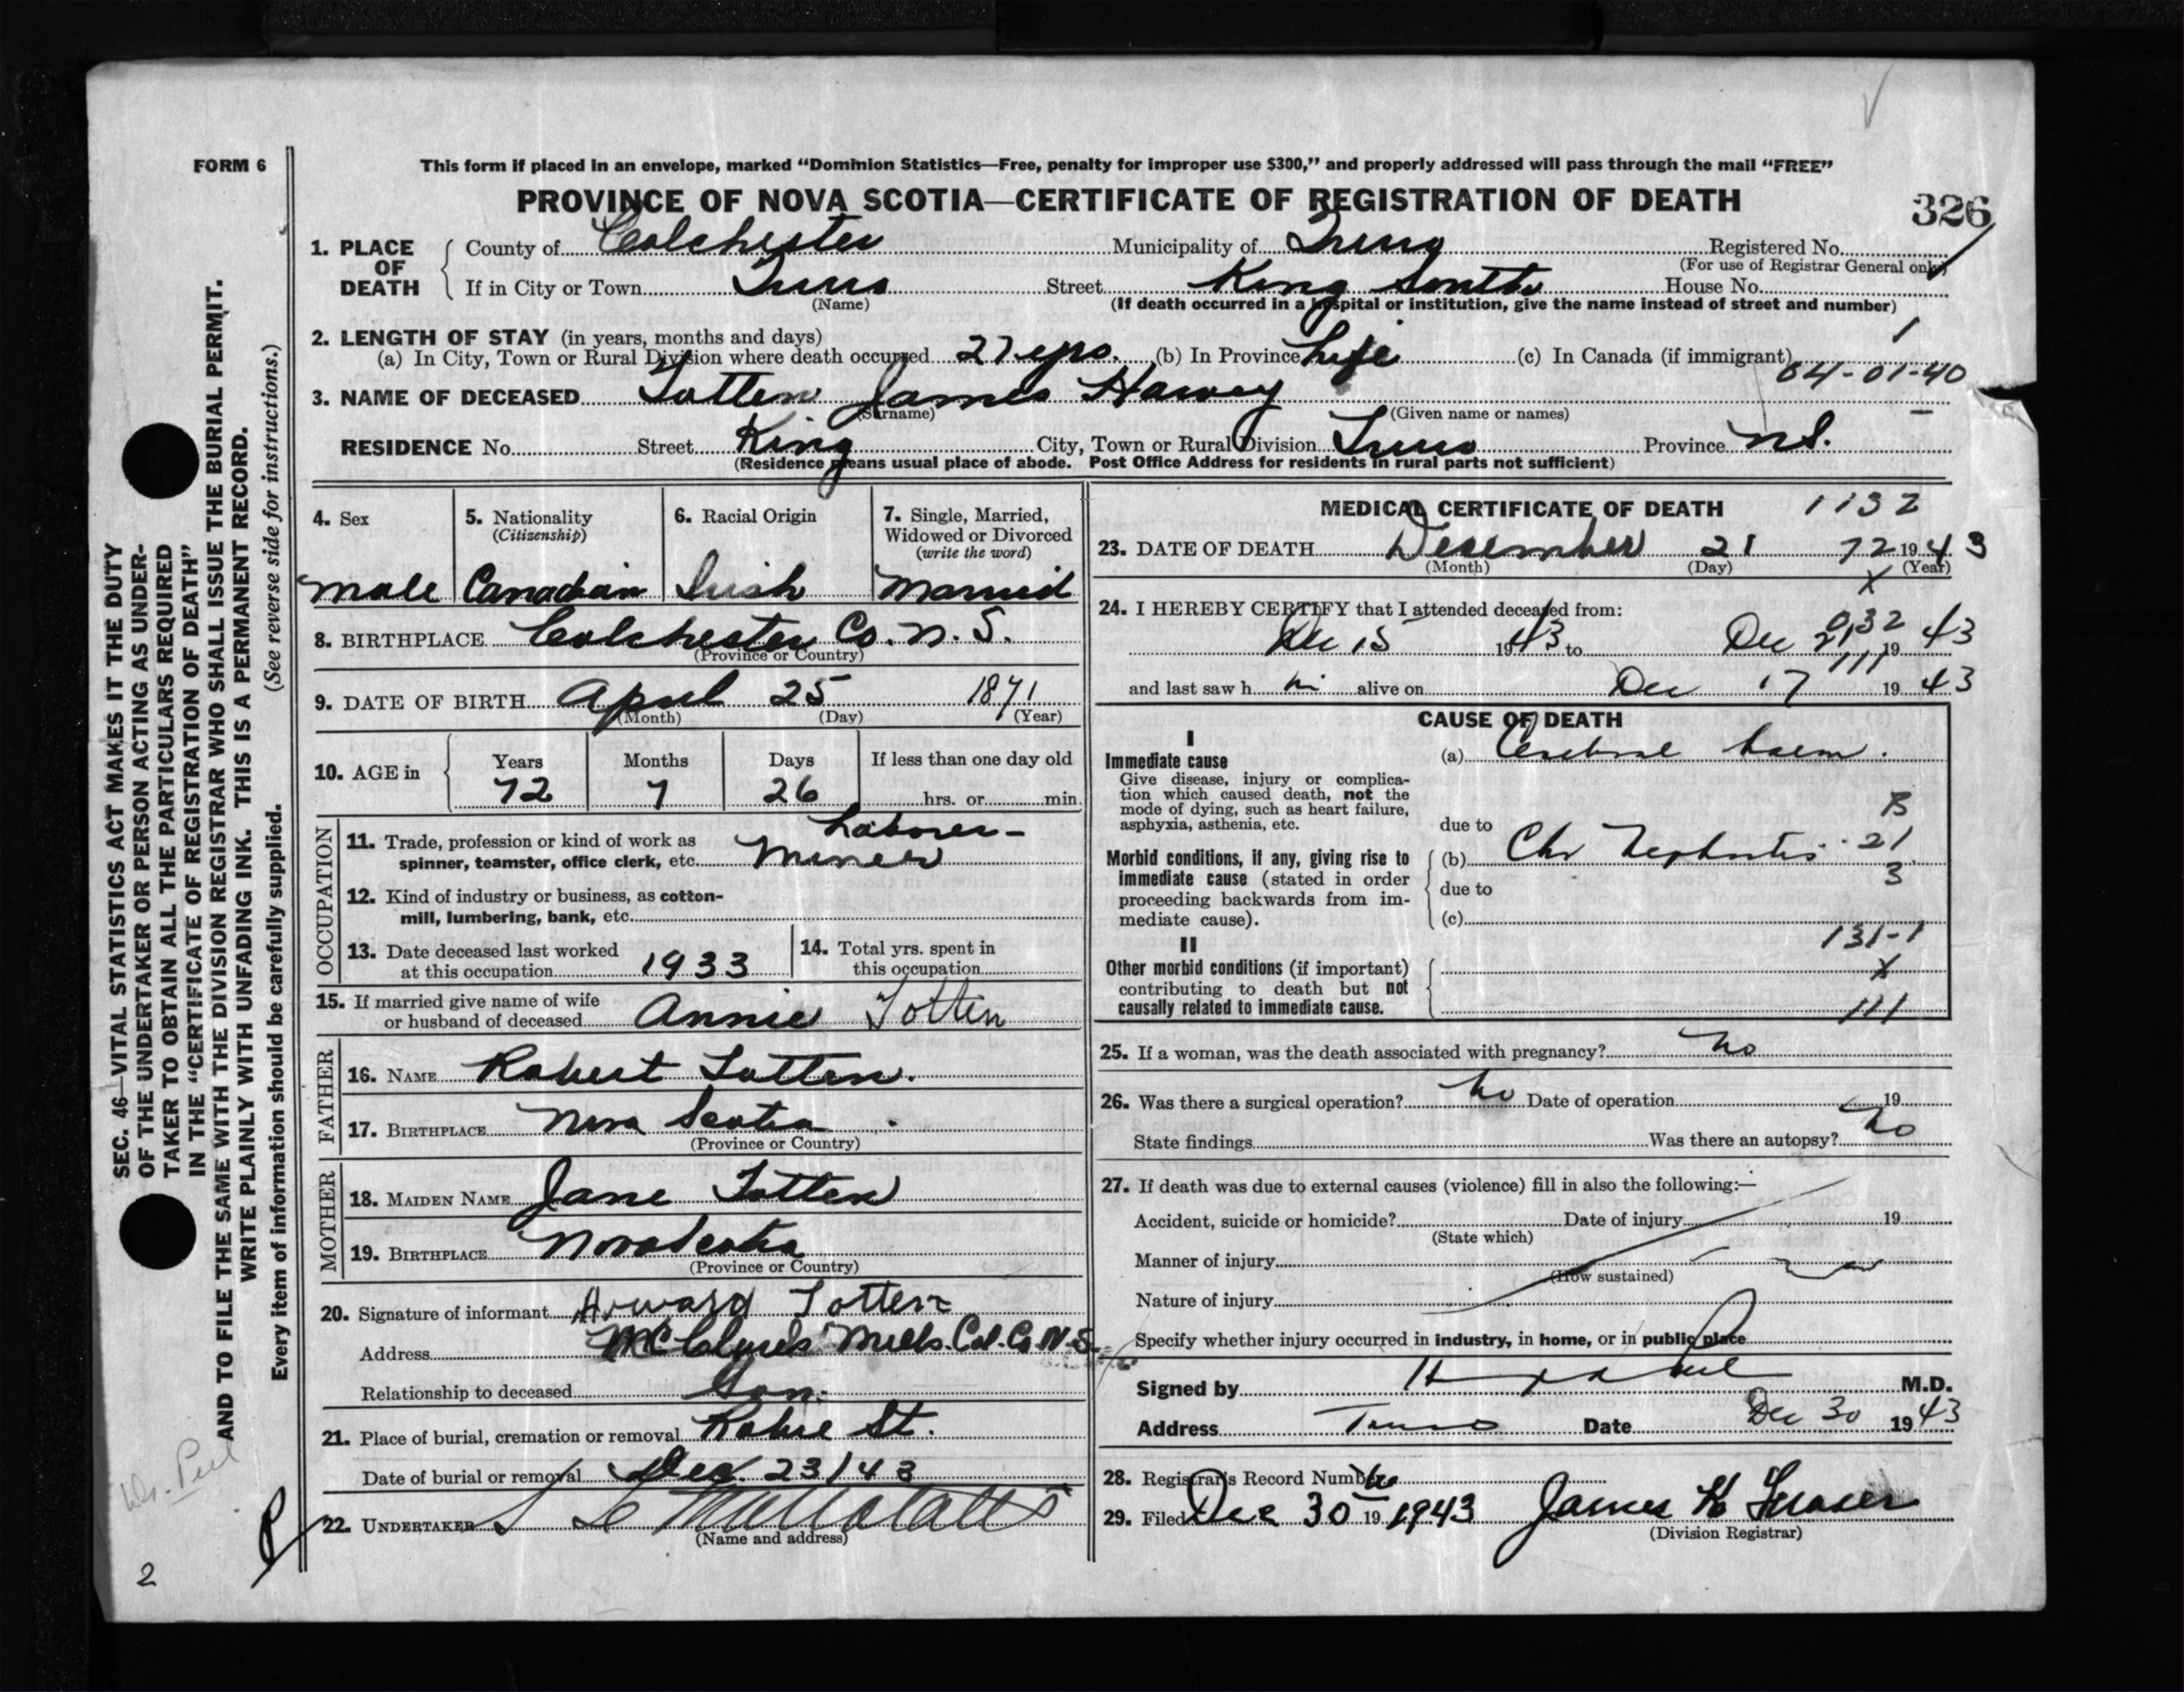 FORM 6
This form if placed in an envelope, marked "Dominion Statistics—Free, penalty for improper use $300," and properly addressed will pass through the mail "FREE"
PROVINCE OF NOVA SCOTIA—CERTIFICATE OF REGISTRATION OF DEATH
326
1. PLACE OF DEATH County of Colchester Municipality of Truro Registered No.
(For use of Registrar General only)
If in City or Town Truro Street King South House No.
(Name) (If death occurred in a hospital or institution, give the name instead of street and number)
2. LENGTH OF STAY (in years, months and days)
(a) In City, Town or Rural Division where death occurred 27 yrs. (b) In Province Life (c) In Canada (if immigrant)
04-01-40
3. NAME OF DECEASED Totten James Harvey
(Surname) (Given name or names)
RESIDENCE No. Street King City, Town or Rural Division Truro Province N.S.
(Residence means usual place of abode. Post Office Address for residents in rural parts not sufficient)
4. Sex
male
5. Nationality
(Citizenship)
Canadian
6. Racial Origin
Irish
7. Single, Married,
Widowed or Divorced
(write the word)
Married
8. BIRTHPLACE Colchester Co. N.S.
(Province or Country)
9. DATE OF BIRTH April 25 1871
(Month) (Day) (Year)
10. AGE in Years Months Days If less than one day old
72 7 26 hrs. or min.
OCCUPATION
Laborer-
11. Trade, profession or kind of work as
spinner, teamster, office clerk, etc. Miner
12. Kind of industry or business, as cotton-
mill, lumbering, bank, etc.
13. Date deceased last worked
at this occupation 1933
14. Total yrs. spent in
this occupation
15. If married give name of wife
or husband of deceased Annie Totten
FATHER
16. NAME Robert Totten.
17. BIRTHPLACE Nova Scotia
(Province or Country)
MOTHER
18. MAIDEN NAME Jane Totten
19. BIRTHPLACE Nova Scotia
(Province or Country)
20. Signature of informant Howard Totten
Address Mills. Col. Co. N.S.
Relationship to deceased Son.
21. Place of burial, cremation or removal Robie St.
Date of burial or removal Dec. 23/43
22. UNDERTAKER
(Name and address)
MEDICAL CERTIFICATE OF DEATH 1132
23. DATE OF DEATH December 21 72 1943
(Month) (Day) (Year)
X
24. I HEREBY CERTIFY that I attended deceased from:
032
Dec 15 1943 to Dec 21 19 43
111
and last saw h im alive on Dec 17 19 43
CAUSE OF DEATH
I
Immediate cause
Give disease, injury or complica-
tion which caused death, not the
mode of dying, such as heart failure,
asphyxia, asthenia, etc.
(a) Cerebral haem.
B
due to
Morbid conditions, if any, giving rise to
immediate cause (stated in order
proceeding backwards from im-
mediate cause).
(b) Chr Nephritis 21
due to 3
(c)
131-1
II
Other morbid conditions (if important)
contributing to death but not
causally related to immediate cause.
X
111
25. If a woman, was the death associated with pregnancy? no
26. Was there a surgical operation? no Date of operation 19
State findings Was there an autopsy? no
27. If death was due to external causes (violence) fill in also the following:—
Accident, suicide or homicide? Date of injury 19
(State which)
Manner of injury
(How sustained)
Nature of injury
Specify whether injury occurred in industry, in home, or in public place
Signed by M.D.
Address Truro Date Dec 30 1943
28. Registrar's Record Number
29. Filed Dec 30 19 1943 James H Fraser
(Division Registrar)
SEC. 46—VITAL STATISTICS ACT MAKES IT THE DUTY
OF THE UNDERTAKER OR PERSON ACTING AS UNDER-
TAKER TO OBTAIN ALL THE PARTICULARS REQUIRED
IN THE "CERTIFICATE OF REGISTRATION OF DEATH"
AND TO FILE THE SAME WITH THE DIVISION REGISTRAR WHO SHALL ISSUE THE BURIAL PERMIT.
WRITE PLAINLY WITH UNFADING INK. THIS IS A PERMANENT RECORD.
Every item of information should be carefully supplied. (See reverse side for instructions.)
2